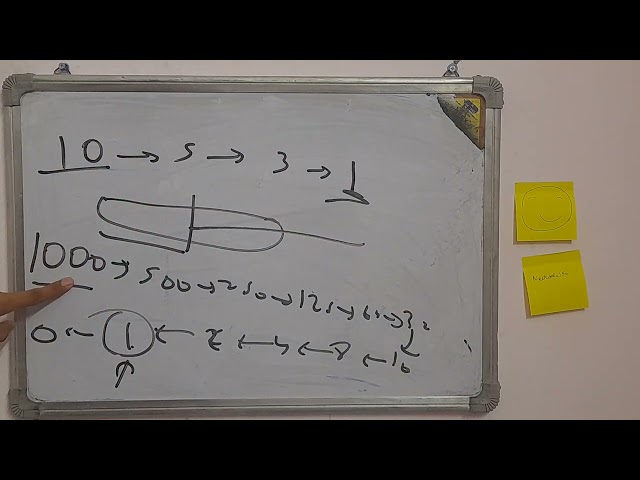 10 → 5 → 3 → 1
1000 → 500 → 250 → 125 → 63 → 32
0 ← 1 ← 2 ← 4 ← 8 ← 16